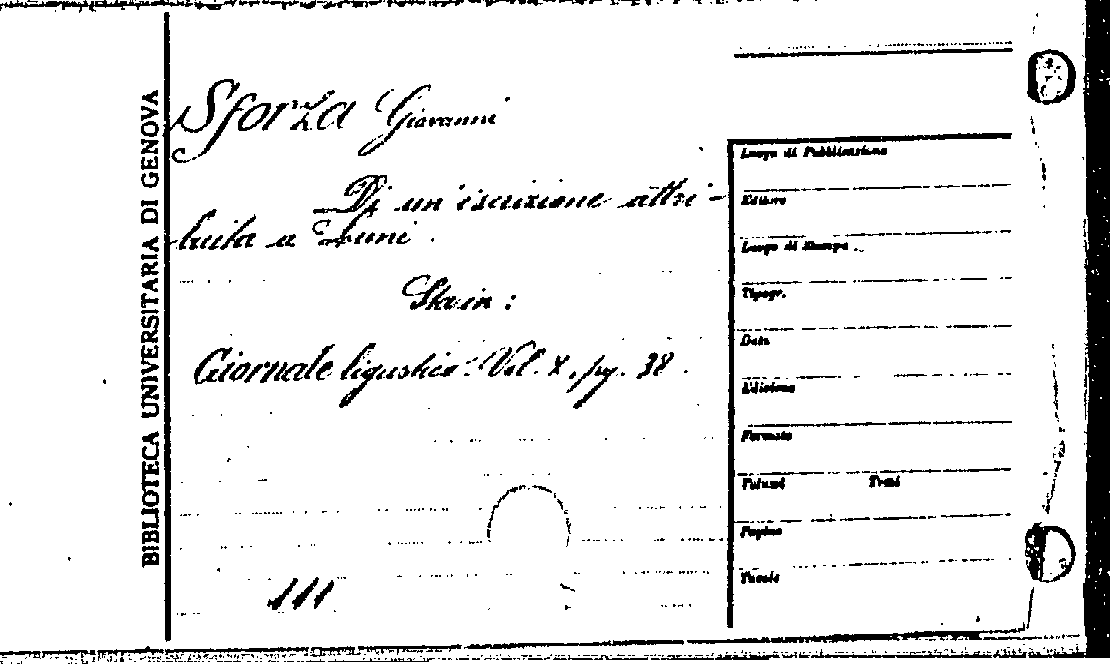 BIBLIOTECA UNIVERSITARIA DI GENOVA
Sforza Giovanni
Di un'iscrizione attri-
buita a Luni.
Sta in:
Giornale ligustico: Vol. X, pg. 38.
111
Luogo di Pubblicazione
Editore
Luogo di Stampa
Tipogr.
Data
Edizione
Formato
Volumi Tomi
Pagine
Tavole